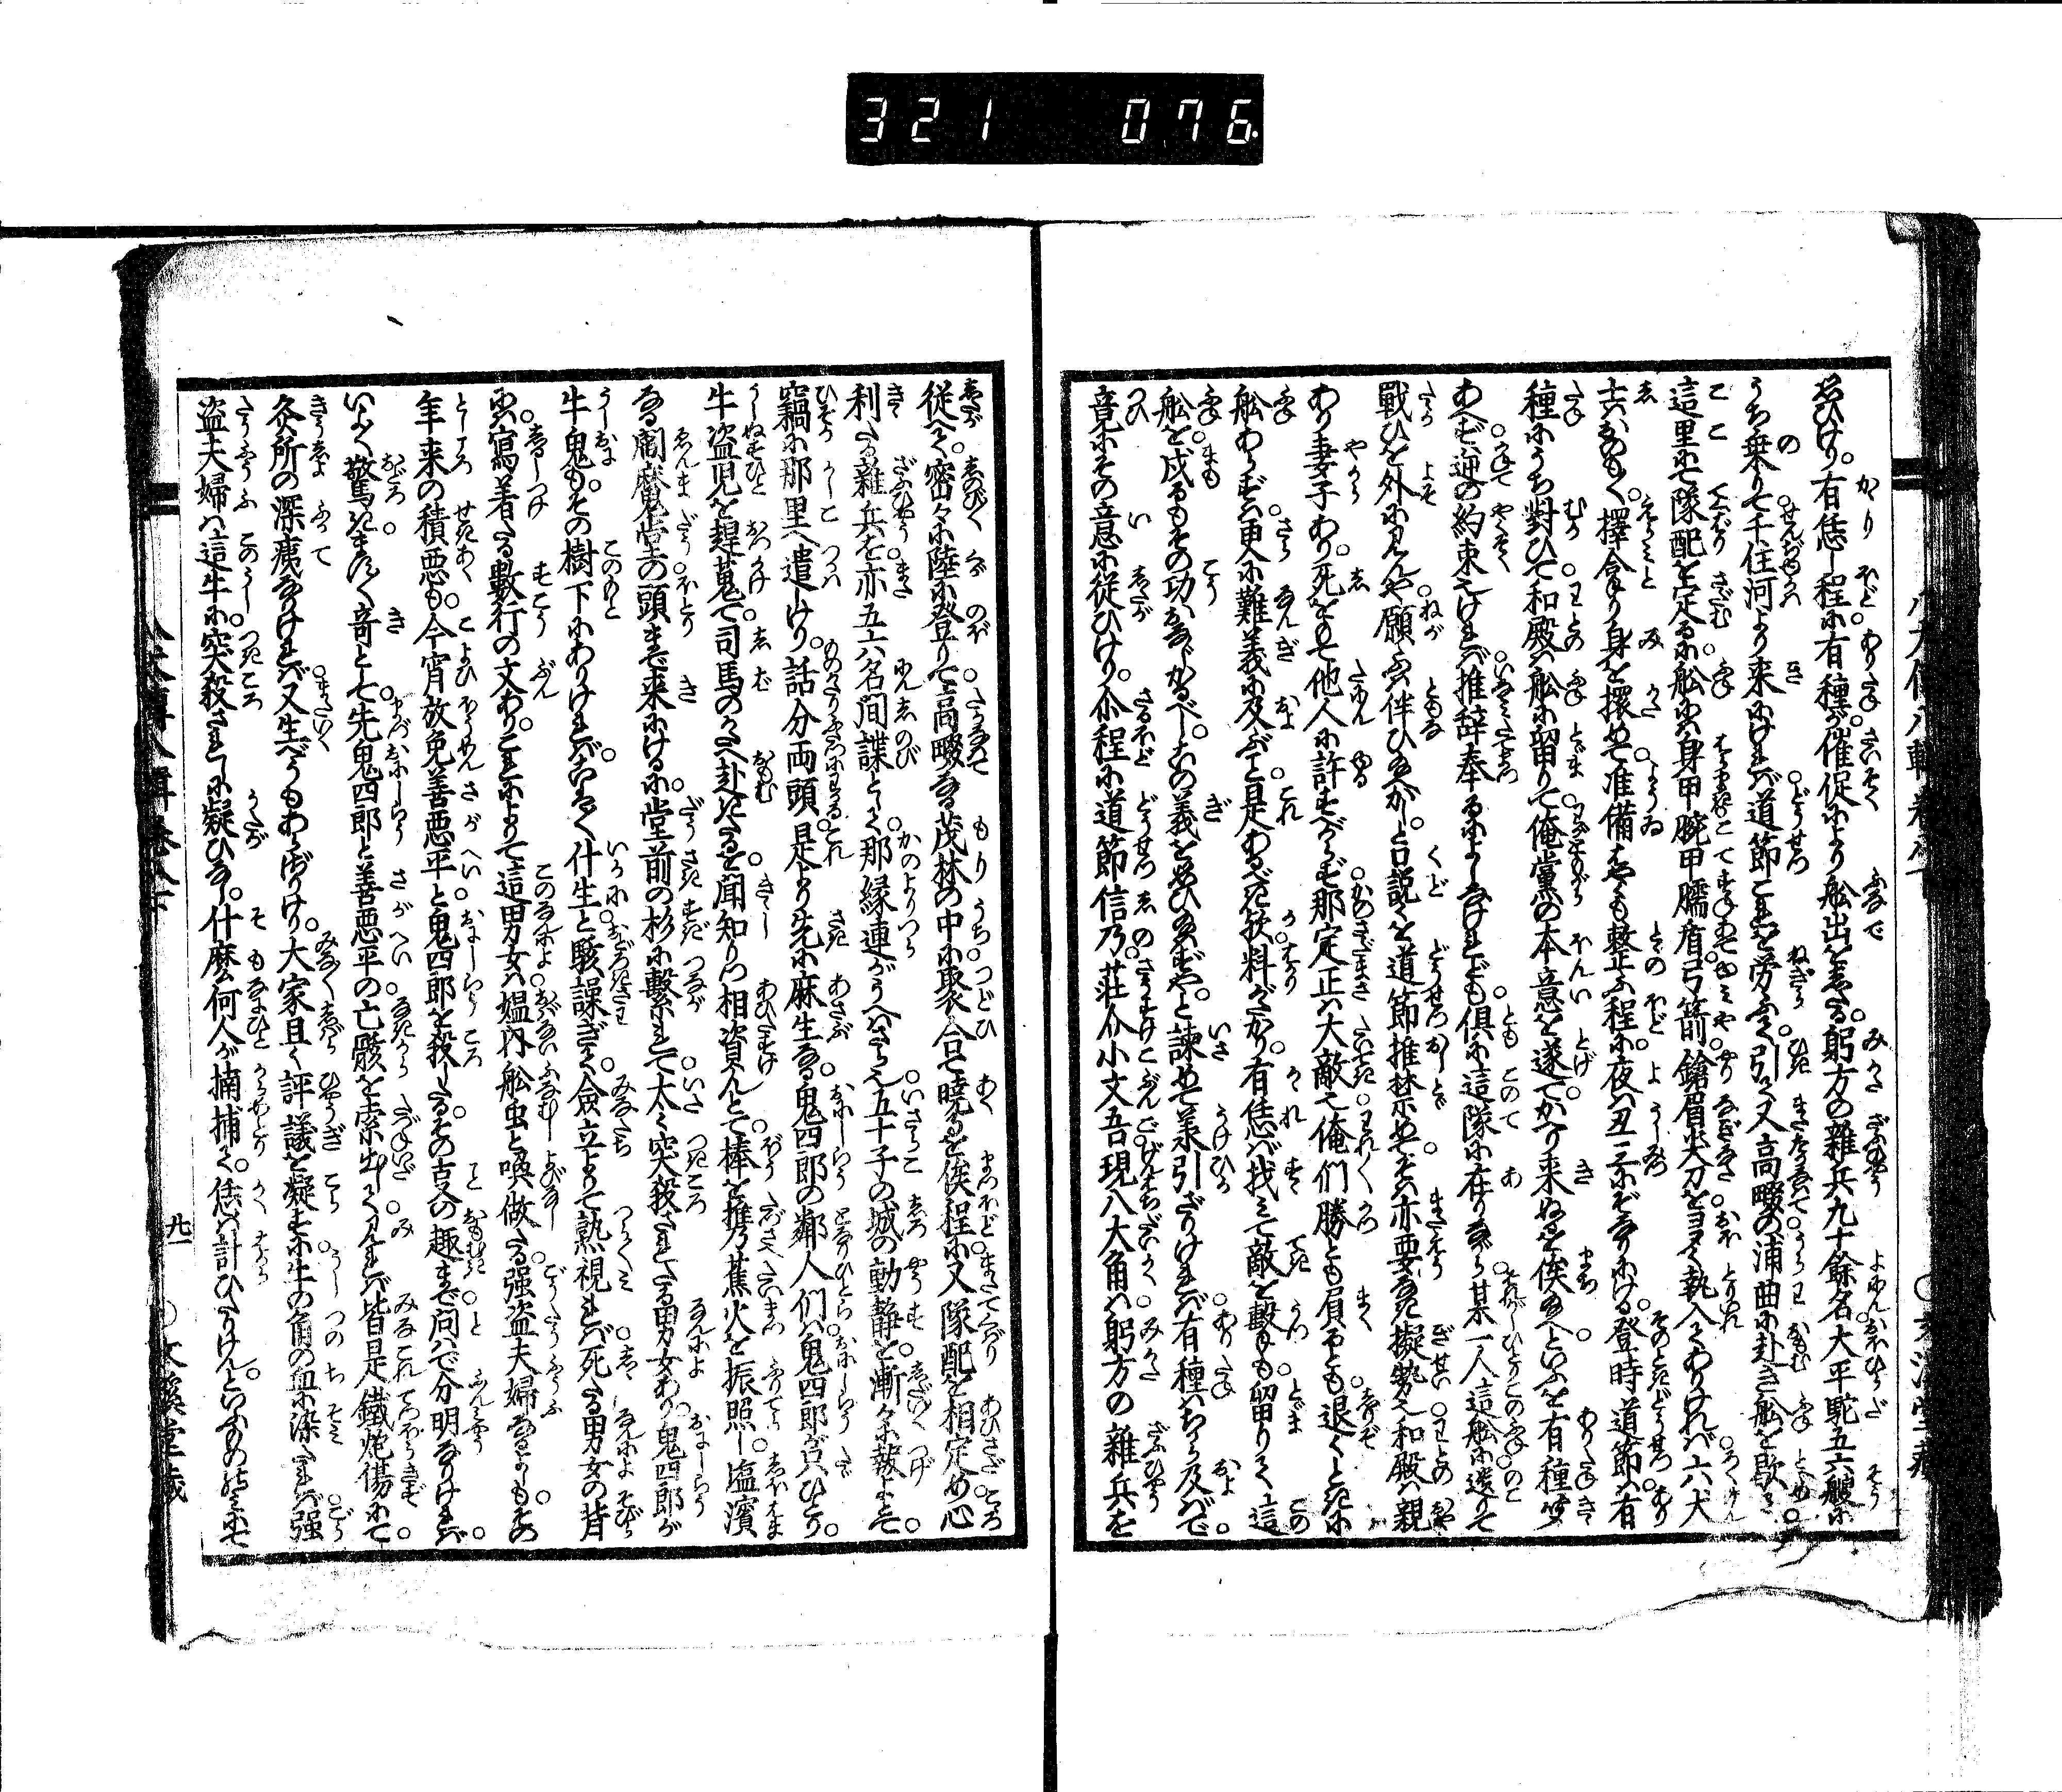 321 076.
思ひけり。有恁し程に有種が催促により船出をしたる。躬方の雑兵九十餘名大平駝五六艘に
うち乗りて千住河より来にければ道節これを労ふて。引て又高畷の浦曲に赴き船を歇て
這里にて隊配を定るに船には身甲腕甲臑盾弓箭鎗眉尖刀をヨク執入てありければ六犬
士はおの〳〵擇合り身を擐めて准備はやくも整ふ程に夜は丑三にぞなりにける登時道節は有
種にうち對ひて和殿は船に留りて俺黨の本意を遂てかへり来ぬるを俟給へといふを有種聞
あへず逆の約束でければ推辞奉るによしなけれども倶に這隊に在りながら某一人這船に送りて
戦ひを外に見んや願ふは伴ひ給へかしと口説くを道節推禁めてそは亦要なき擬勢也和殿は親
あり妻子あり死をもて他人に許すべからず那定正は大敵也俺們勝とも屓るとも退くときに
船あらずは更に難義に及ぶべし是あるべき欤料がたかり有恁ば找みて敵を撃も留りて這
船を戍るもその功はおなじかるべしこの義を思ひ給はずやと諫めて承引ざりければ有種はちから及ばで
竟にその意に従ひけり。尒程に道節信乃。荘介小文吾現八大角は躬方の雑兵を
従へて。密々に陸に登りて高畷なる茂林の中に聚合て暁るを俟程に又隊配を相定め心
利たる雑兵を亦五六名間諜として那縁連がうへはさら也五十子の城の動静を漸々に報よとて
竊に那里へ遣しけり。話分両頭是より先に麻生なる鬼四郎の鄰人們は鬼四郎が只ひとり
牛盗児を趕蒐て司馬のかたへ赴きたるを聞知りつ相資んとて棒を携蕉火を振照し塩濱
なる閻魔堂の頭まで来にけるに。堂前の杉に繋れて太く突殺されたる男女あり鬼四郎が
牛鬼もその樹下にありければこはそも什生と駭譟ぎて僉立よりて熟視れば死たる男女の背
に寫著たる數行の文ありこれによりて這男女は媼内舩虫と喚做たる强盗夫婦なるよしもその
年来の積悪も今宵放免善悪平と鬼四郎を殺したるその古への趣まで向はで分明なりければ
いよ〳〵驚きまた〳〵奇として先鬼四郎と善悪平の亡骸を索出して見れば皆是鐵炮傷にて
灸所の深痍なりければ又生べうもあらざりけり。大家且く評議を凝すに牛の角の血に染たれば强
盗夫婦は這牛に。突殺されしに疑ひなし。什麼何人が捕捕て。恁は計ひたりけん。といふのみにて
九